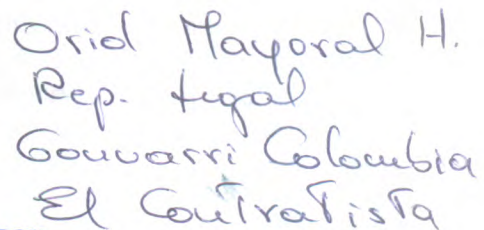 Oriol Mayoral H.
Rep. Legal
Gonvarri Colombia
El Contratista